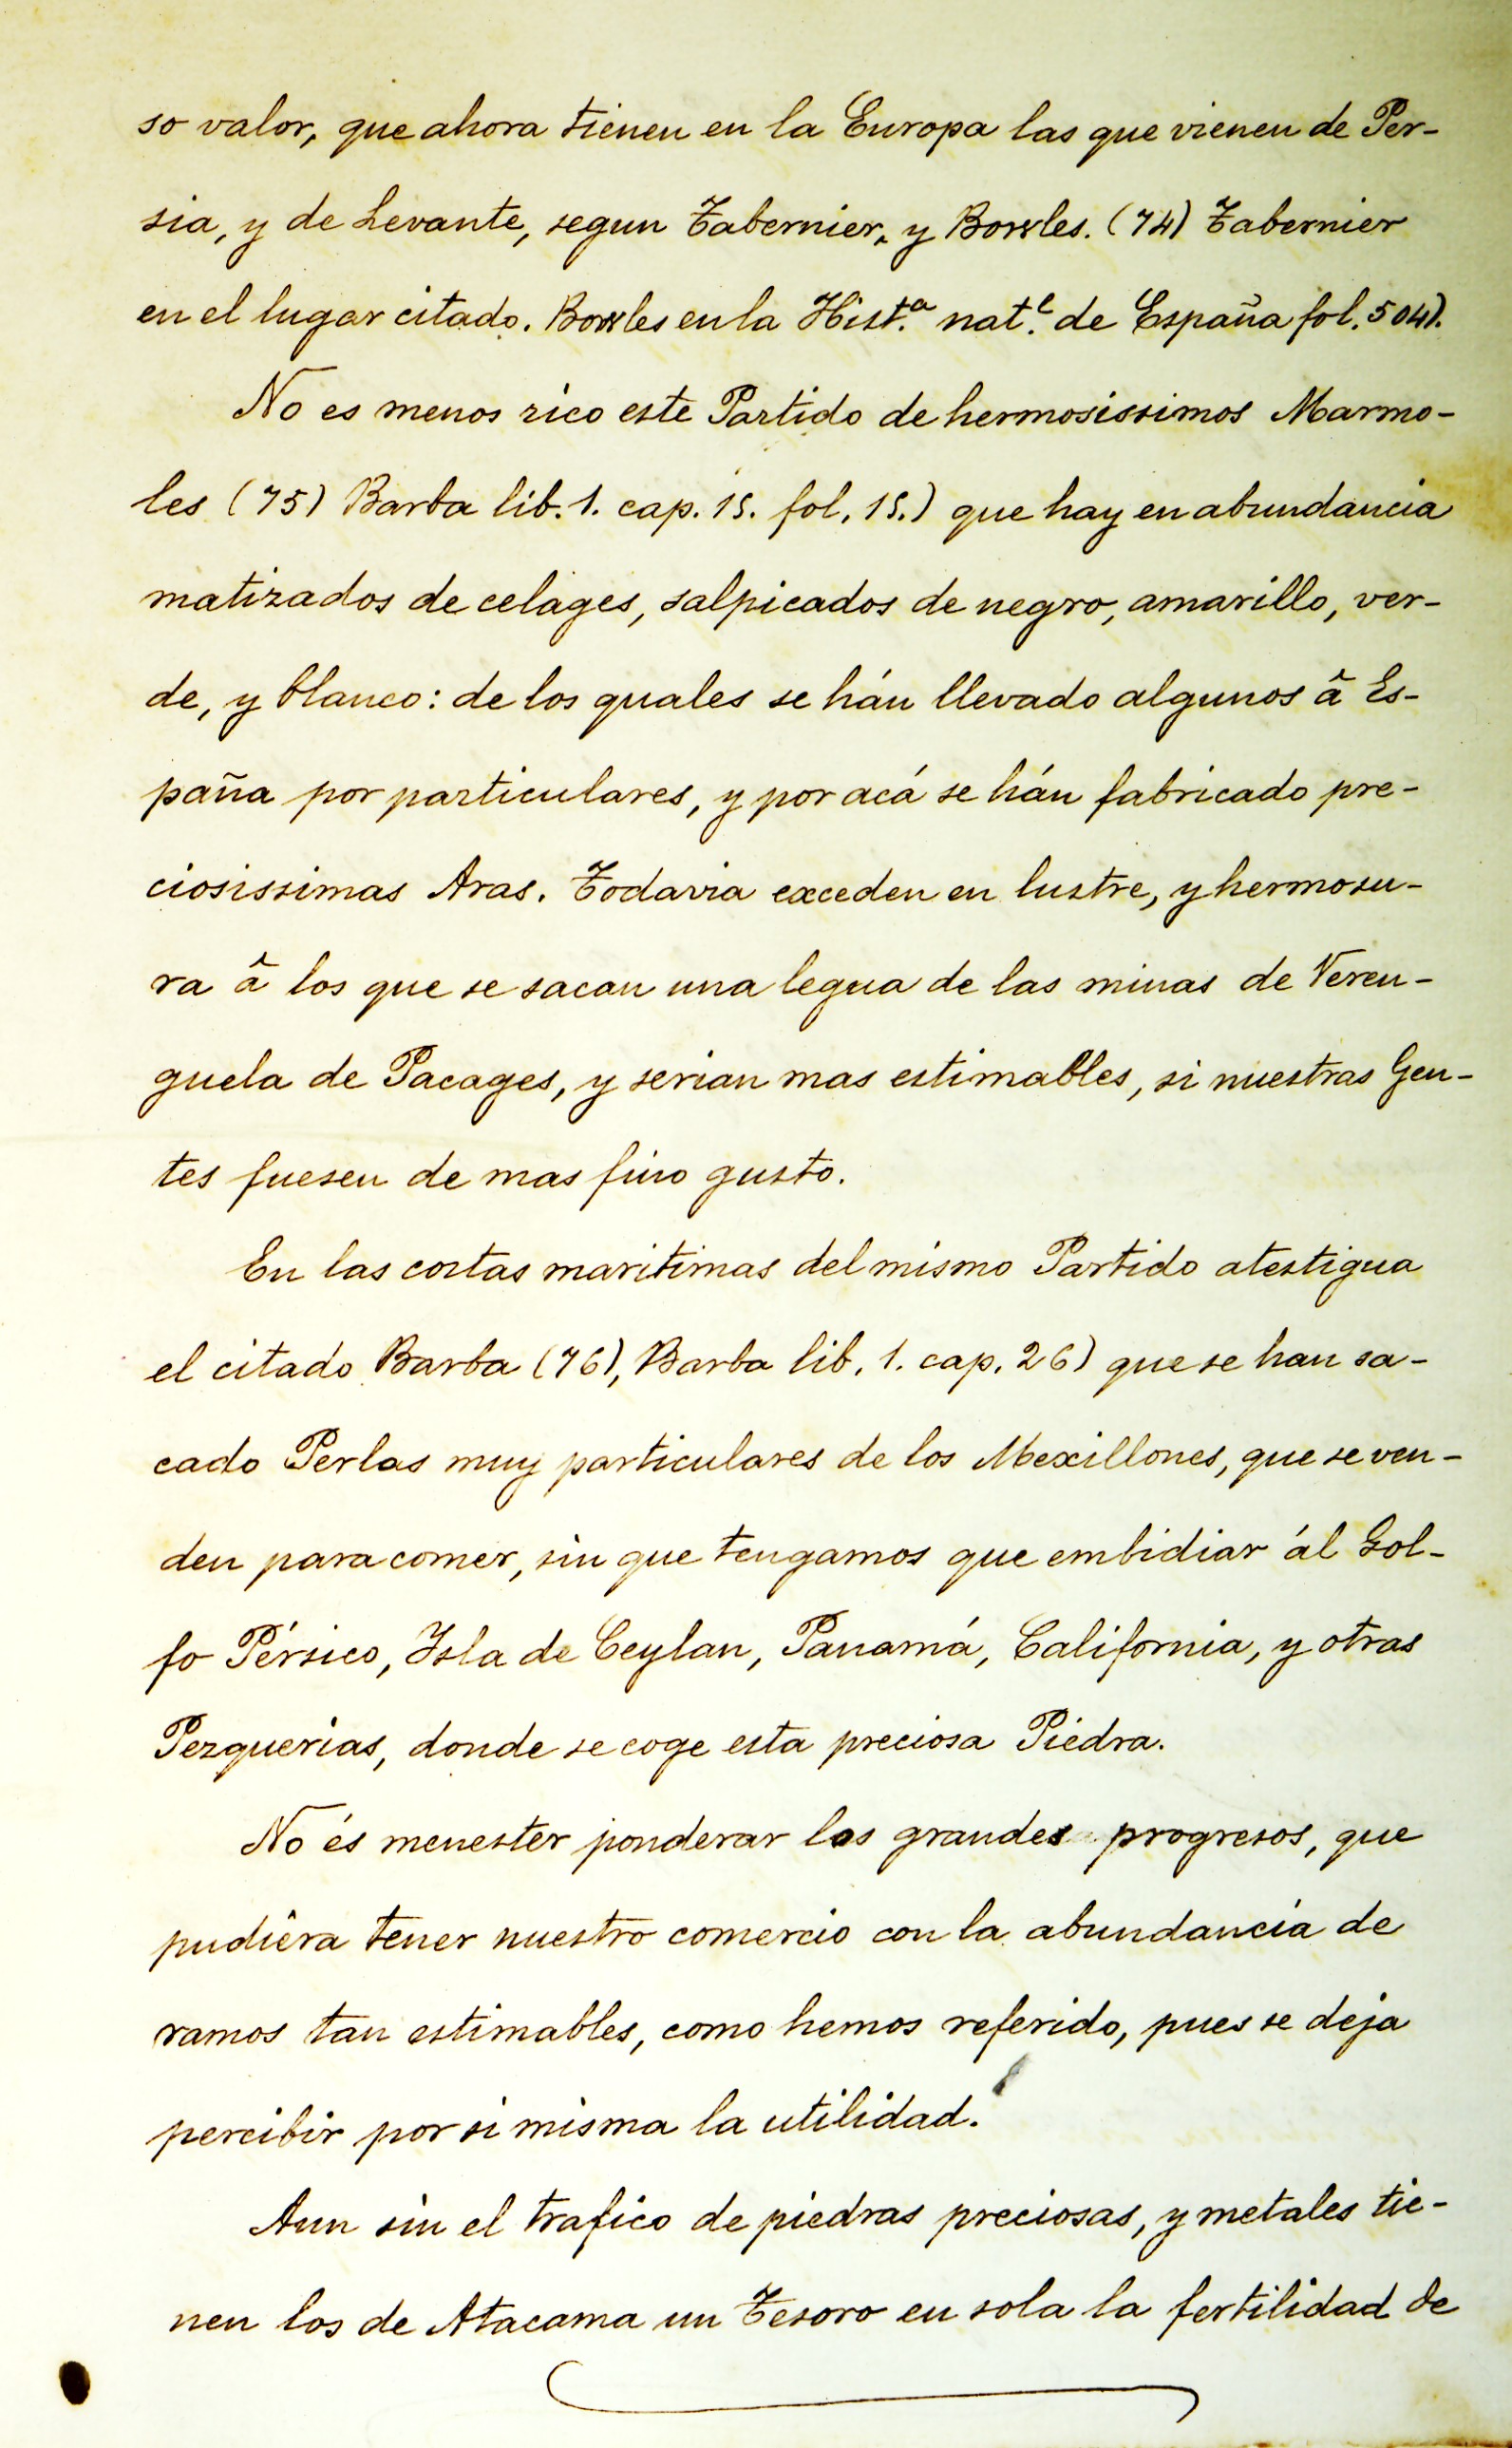 so valor, que ahora tienen en la Europa las que vienen de Per-
sia, y de Levante, segun Tabernier, y Bowles. (74) Tabernier
en el lugar citado. Bowles en la Hist.ª nat.l de España fol. 504).
No es menos rico este Partido de hermosissimos Marmo-
les (75) Barba lib. 1. cap. 15. fol. 15.) que hay en abundancia
matizados de celages, salpicados de negro, amarillo, ver-
de, y blanco: de los quales se hán llevado algunos â Es-
paña por particulares, y por acá se hán fabricado pre-
ciosissimas Aras. Todavia exceden en lustre, y hermosu-
ra â los que se sacan una legua de las minas de Veren-
guela de Pacages, y serian mas estimables, si nuestras Gen-
tes fuesen de mas fino gusto.
En las costas maritimas del mismo Partido atestigua
el citado Barba (76), Barba lib. 1. cap. 26) que se han sa-
cado Perlas muy particulares de los Mexillones, que se ven-
den para comer, sin que tengamos que embidiar ál Gol-
fo Pérsico, Isla de Ceylan, Panamá, California, y otras
Pezquerias, donde se coge esta preciosa Piedra.
No és menester ponderar los grandes progresos, que
pudiera tener nuestro comercio con la abundancia de
ramos tan estimables, como hemos referido, pues se deja
percibir por si misma la utilidad.
Aun sin el trafico de piedras preciosas, y metales tie-
nen los de Atacama un Tesoro en sola la fertilidad de